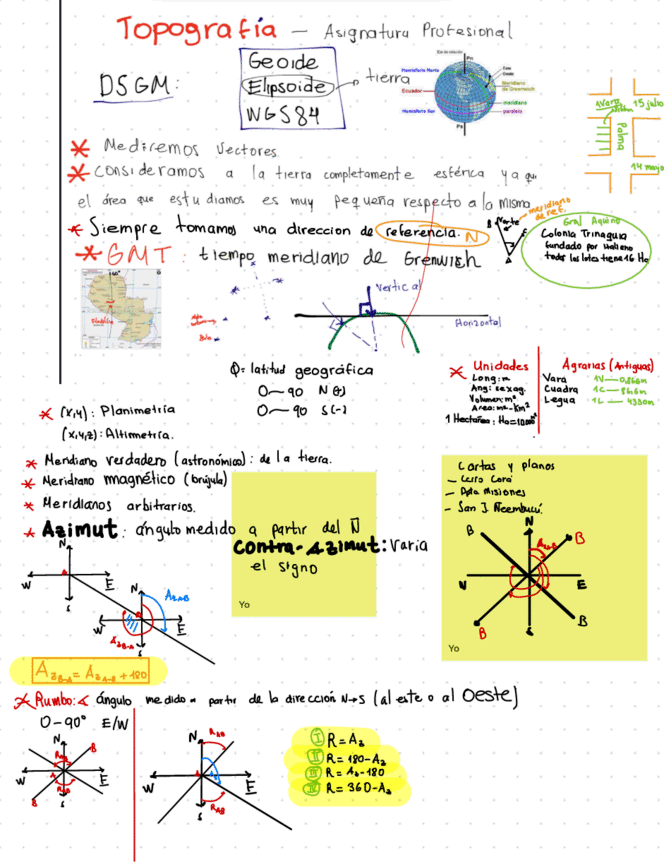 Topografía — Asignatura Profesional
DSGM:
Geoide
Elipsoide → tierra
WGS84
Hemisferio Norte
Ecuador
Hemisferio Sur
Meridiano
de Greenwich
meridiano
paralelo
Pn
Ps
1Vara
15 julio
Palma
14 mayo
* Mediremos Vectores.
* Consideramos a la tierra completamente esférica ya que
el área que estudiamos es muy pequeña respecto a la misma
* Siempre tomamos una direccion de referencia. N
meridiano
de ref.
Norte
B
A
Gral Aquino
Colonia Trinaguia
fundado por
todos los lotes tiene 16 Ha
* GMT: tiempo meridiano de Grenwich
Vertical
Horizontal
Q= latitud geográfica
0 — 90 N (+)
0 — 90 S (-)
* Unidades
Long: m
Ang: sexag.
Volumen: m³
Area: m² - km²
1 Hectárea: Ha=10000m²
Agrarias (Antiguas)
Vara 1V — 0,866m
Cuadra 1C — 86,6m
Legua 1L — 4330m
* (x,y): Planimetría
(x,y,z): Altimetría.
* Meridiano verdadero (astronómico): de la tierra.
* Meridiano magnético (brújula)
* Meridianos arbitrarios.
* Azimut: ángulo medido a partir del N
Contra-Azimut: Varia
el signo
Yo
Cartas y planos
— Cerro Corá
— Dpto Misiones
— San J. Ñeembucú.
N
B
B
A_{zA-B}
W
E
B
S
B
Yo
N
A
W
E
S
N
A_{zA-B}
W
E
A_{zB-A}
S
A_{zB-A} = A_{zA-B} + 180
* Rumbo: ∢ ángulo medido a partir de la dirección N→S (al este o al Oeste)
0-90° E/W
N
R_{AB}
B
W
A
E
R_{AB}
B
S
N
R_{AB}
A
W
E
R_{AB}
S
I R = Az
II R = 180-Az
III R = Az-180
IV R = 360-Az